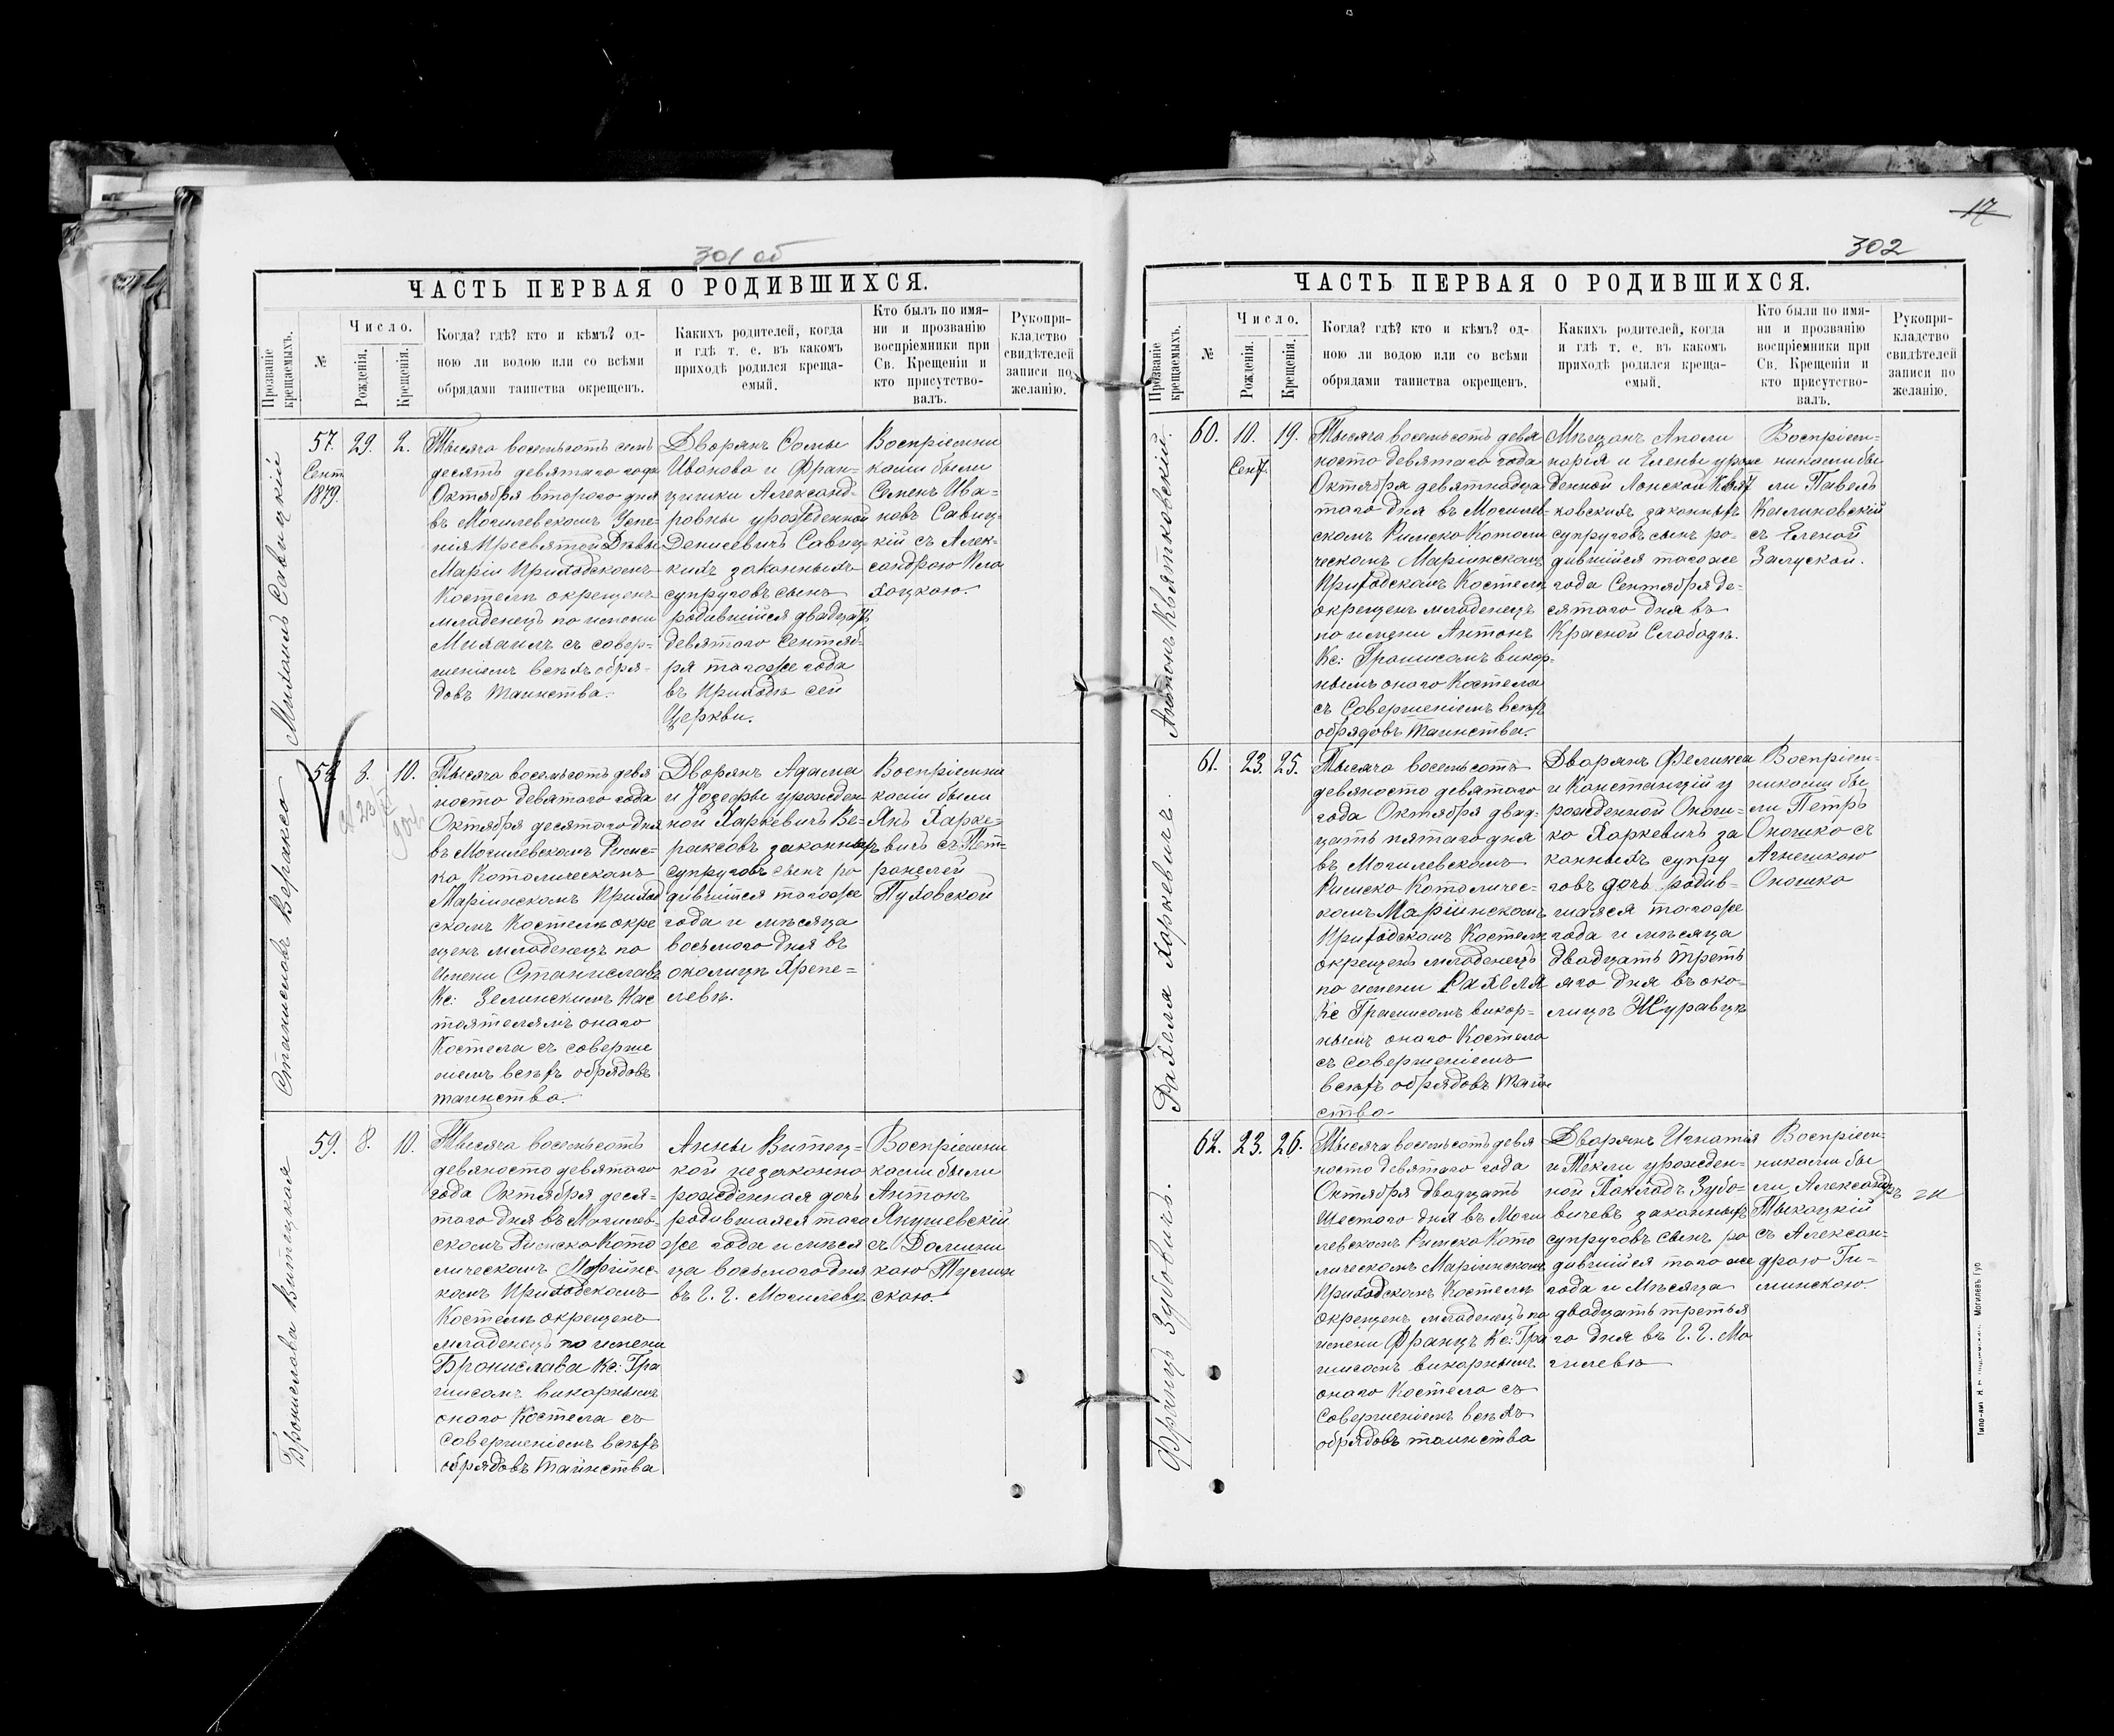 17
301 об
302
ЧАСТЬ ПЕРВАЯ О РОДИВШИХСЯ.
Прозваніе крещаемыхъ.
№
Число.
Рожденія.
Крещенія.
Когда? гдѣ? кто и кѣмъ? од-
ною ли водою или со всѣми
обрядами таинства окрещенъ.
Какихъ родителей, когда
и гдѣ т. е. въ какомъ
приходѣ родился креща-
емый.
Кто былъ по имя-
ни и прозванію
воспріемники при
Св. Крещеніи и
кто присутство-
валъ.
Рукопри-
кладство
свидѣтелей
записи по
желанію.
Михаилъ Савицкій
57.
Сент
1879.
29.
2.
Тысяча восемьсотъ семь
десятъ девятаго года
Октября втораго дня
въ Могилевскомъ Успе-
нія Пресвятой Дѣвы
Маріи Приходскомъ
Костелѣ окрещенъ
младенецъ по имени
Михаилъ съ совер-
шеніемъ всѣхъ обря-
довъ таинства.
Дворянъ Сомы
Иванова и Фран-
цишки Александ-
ровны урожденной
Денисевичъ Савиц-
кихъ законныхъ
супруговъ сынъ
родившійся двадцать
девятаго Сентяб-
ря тогоже года
въ Приходѣ сей
Церкви.
Воспріемни
ками были
Семенъ Ива-
новъ Савиц-
кій съ Алек-
сандрою
Станиславъ Веракса
58.
8.
10.
Тысяча восемьсотъ девя
носто девятаго года
Октября десятаго дня
въ Могилевскомъ Римс-
ко Католическомъ
Маріинскомъ Приход
скомъ Костелѣ окре
щенъ младенецъ по
Имени Станиславъ
Кс: Зелинскимъ Нас
тоятелямъ онаго
Костела съ соверше
ніемъ всѣхъ обрядовъ
таинства.
Дворянъ Адама
и Іозефы урожден
ной Харкевичъ Ве-
раксовъ законныхъ
супруговъ сынъ ро
дившійся тогоже
года и мѣсяца
восьмого дня въ
околицѣ Хрепе-
левѣ.
Воспріемни
ками были
Янъ Харке-
вичъ съ Пет-
ронелей
Пуховской
Бронислава Витецкая
59.
8.
10.
Тысяча восемьсотъ
девяносто девятаго
года Октября деся-
таго дня въ Могилев-
скомъ Римско Като
лическомъ Маріинс-
комъ Приходскомъ
Костелѣ окрещенъ
младенецъ по имени
Бронислава Кс: Гра
шисомъ викарнымъ
онаго Костела съ
совершеніемъ всѣхъ
обрядовъ таинства
Анны Витец-
кой незаконно
рожденная дочь
родившаяся того
же года и мѣся
ца восьмого дня
въ Г. Г. Могилевѣ
Воспріемни
ками были
Антонъ
Янушевскій
съ Домини
кою
скою.
ЧАСТЬ ПЕРВАЯ О РОДИВШИХСЯ.
Прозваніе крещаемыхъ.
№
Число.
Рожденія.
Крещенія.
Когда? гдѣ? кто и кѣмъ? од-
ною ли водою или со всѣми
обрядами таинства окрещенъ.
Какихъ родителей, когда
и гдѣ т. е. въ какомъ
приходѣ родился креща-
емый.
Кто были по имя-
ни и прозванію
воспріемники при
Св. Крещеніи и
кто присутство-
валъ.
Рукопри-
кладство
свидѣтелей
записи по
желанію.
Антонъ Квятковскій.
60.
10.
Сент.
19.
Тысяча восемьсотъ девя
носто девятаго года
Октября девятнадца
таго дня въ Могилев-
скомъ Римско Католи
ческомъ Маріинскомъ
Приходскомъ Костелѣ
окрещенъ младенецъ
по имени Антонъ
Кс: Грашисомъ викар-
нымъ онаго Костела
съ Совершеніемъ всѣхъ
обрядовъ Таинства.
Мѣщанъ Аполи
нарія и Елены урож
денной Лонской Квят
ковскихъ законныхъ
супруговъ сынъ ро-
дившійся тогоже
года Сентября де-
сятаго дня въ
Красной Слабодѣ.
Воспріем-
никами бы
ли Павелъ
Калиновскій
съ Еленой
Залуской.
Рахеля Харкевичъ.
61.
23.
25.
Тысяча восемьсотъ
девяносто девятаго
года Октября двад-
цать пятаго дня
въ Могилевскомъ
Римско Католичес-
комъ Маріинскомъ
Приходскомъ Костелѣ
окрещенъ младенецъ
по имени Рахеля
Кс Грашисомъ викар-
нымъ онаго Костела
съ совершеніемъ
всѣхъ обрядовъ Таин
ства.
Дворянъ Феликса
и Констанцій у
рожденной Оноши-
ко Харкевичъ за
конныхъ супру
говъ дочь родив-
шаяся тогоже
года и мѣсяца
двадцать треть
яго дня въ око-
лицѣ Журавцѣ
Воспріем-
никами бы
ли Петръ
Оношко съ
Агнешкою
Оношко
Францъ Зубовичъ.
62.
23.
26.
Тысяча восемьсотъ девя
носто девятаго года
Октября двадцать
шестого дня въ Моги
левскомъ Римско Като
лическомъ Маріинскомъ
Приходскомъ Костелѣ
окрещенъ младенецъ по
имени Францъ Кс: Гра
шисомъ викарнымъ
онаго Костела съ
Совершеніемъ всѣхъ
обрядовъ таинства
Дворянъ Игнатія
и Текли урожден-
ной Паклядъ Зубо-
вичевъ законныхъ
супруговъ сынъ ро
дившійся того же
года и Мѣсяца
двадцать третья
го дня въ Г. Г. Мо
гилевѣ
Воспріем-
никами бы
ли Александръ
Тыкоцкій
съ Алексан-
драю Ги-
минскою.